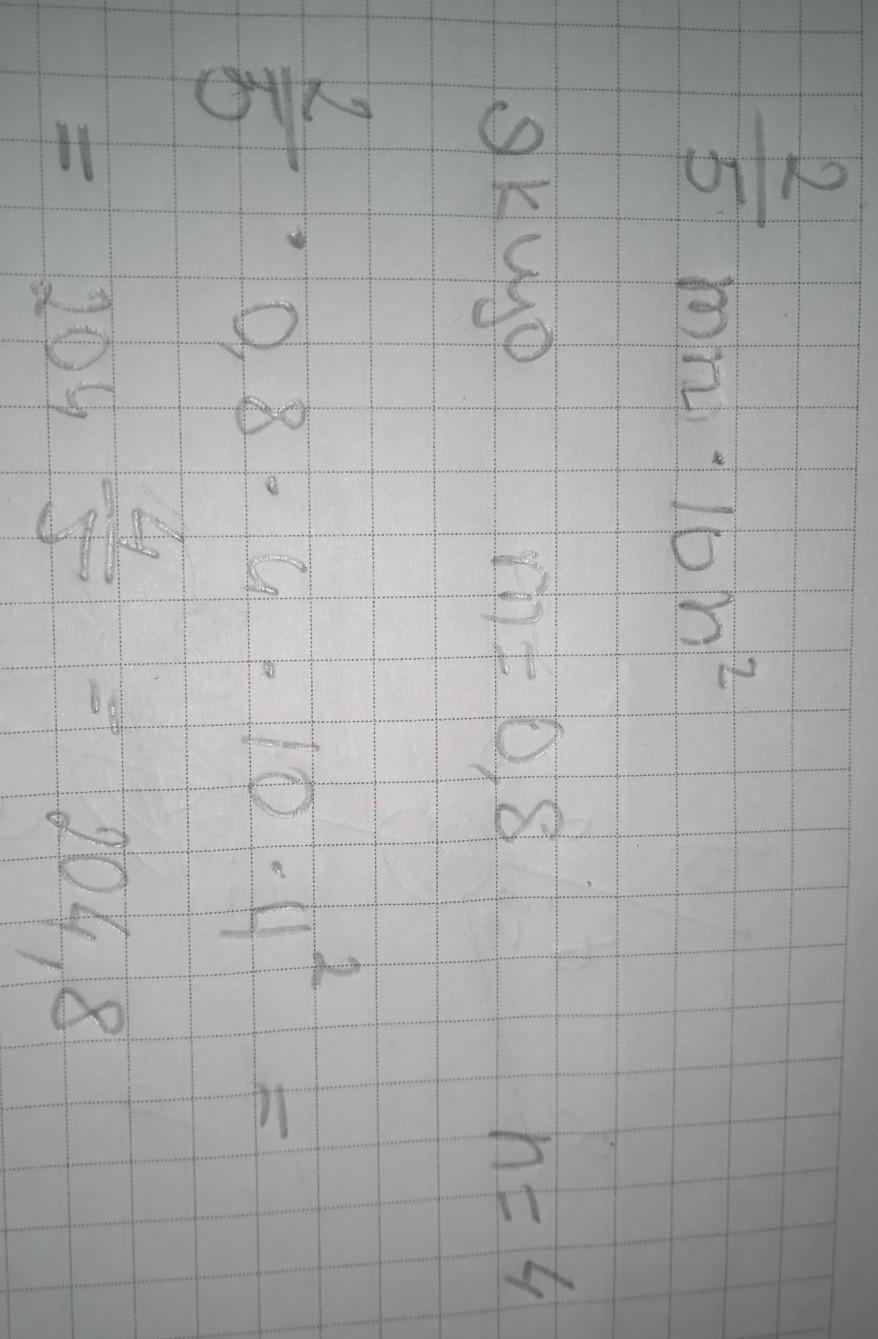 2/5 mn · 10 n²
ако m = 0,8 n = 4
2/5 · 0,8 · 4 · 10 · 4² =
= 204 4/5 = 204,8